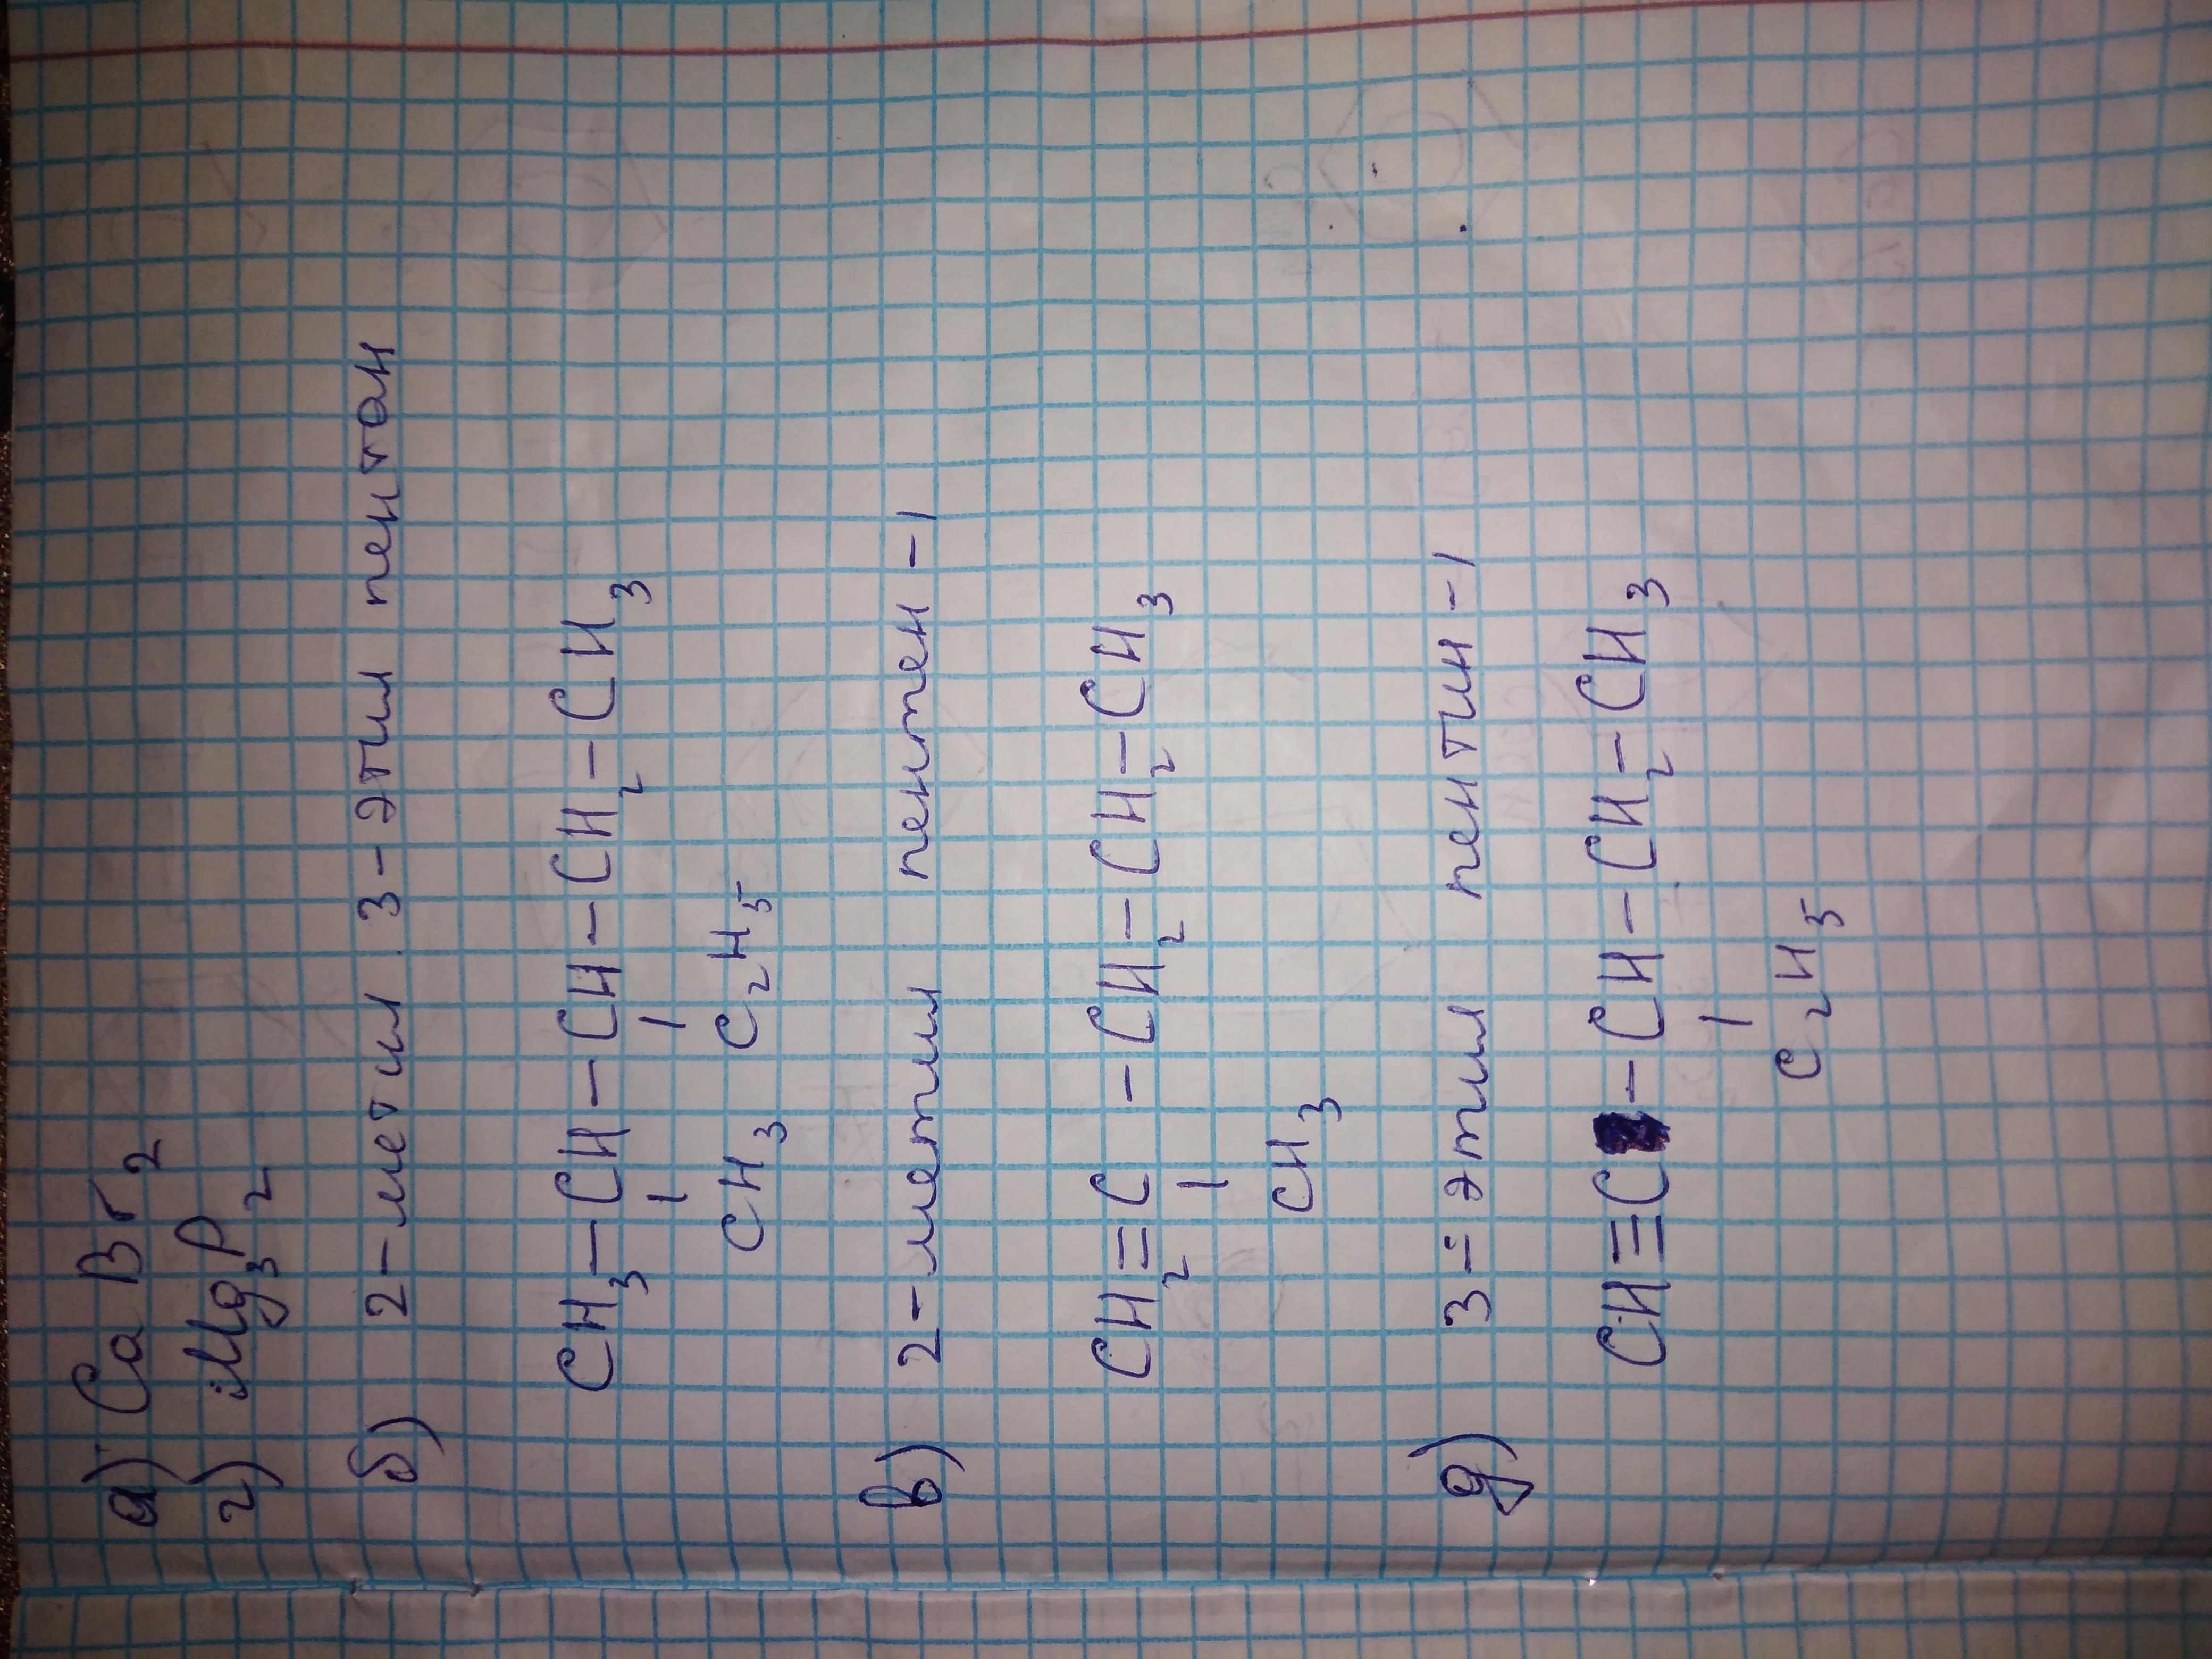 а) CaBr2
г) Mg3P2
б) 2-метил 3-этил пентан
CH3-CH-CH-CH2-CH3
CH3 C2H5
в) 2-метил пентен-1
CH2=C-CH2-CH2-CH3
CH3
д) 3-этил пентин-1
CH≡C-CH-CH2-CH3
C2H5